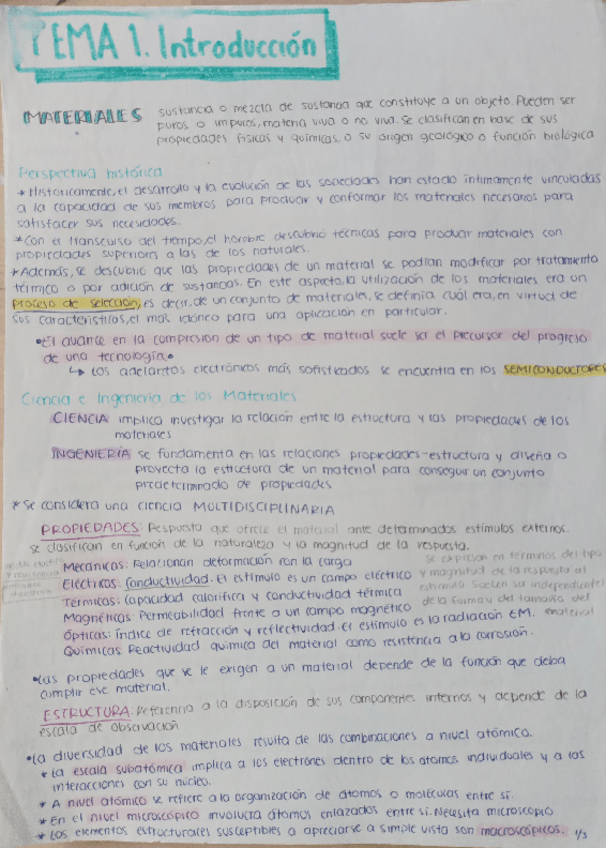 TEMA 1. Introducción
MATERIALES sustancia o mezcla de sustancia que constituye a un objeto. Pueden ser
puros o impuros, materia viva o no viva. Se clasifican en base de sus
propiedades físicas y químicas, o su origen geológico o función biológica
Perspectiva histórica
* Históricamente, el desarrollo y la evolución de las sociedades han estado íntimamente vinculadas
a la capacidad de sus miembros para producir y conformar los materiales necesarios para
satisfacer sus necesidades.
* Con el transcurso del tiempo, el hombre descubrió técnicas para producir materiales con
propiedades superiores a las de los naturales.
* Además, se descubrió que las propiedades de un material se podían modificar por tratamiento
térmico o por adición de sustancias. En este aspecto, la utilización de los materiales era un
proceso de selección, es decir, de un conjunto de materiales, se definía cuál era, en virtud de
sus características, el más idóneo para una aplicación en particular.
• El avance en la compresión de un tipo de material suele ser el precursor del progreso
de una tecnología •
↳ Los adelantos electrónicos más sofisticados se encuentra en los SEMICONDUCTORES
Ciencia e Ingeniería de los Materiales
CIENCIA implica investigar la relación entre la estructura y las propiedades de los
materiales
INGENIERÍA se fundamenta en las relaciones propiedades-estructura y diseña o
proyecta la estructura de un material para conseguir un conjunto
predeterminado de propiedades
* Se considera una ciencia MULTIDISCIPLINARIA
PROPIEDADES: Respuesta que ofrece el material ante determinados estímulos externos.
se clasifican en función de la naturaleza y la magnitud de la respuesta.
Mecánicas: Relacionan deformación con la carga
Eléctricas: Conductividad. El estímulo es un campo eléctrico
Térmicas: Capacidad calorífica y conductividad térmica
Magnéticas: Permeabilidad frente a un campo magnético
Ópticas: Índice de refracción y reflectividad. El estímulo es la radiación EM.
Químicas: Reactividad química del material como resistencia a la corrosión.
se expresan en términos del tipo
y magnitud de la respuesta al
estímulo. Suelen ser independientes
de la forma y del tamaño del
material
• Las propiedades que se le exigen a un material depende de la función que deba
cumplir ese material.
ESTRUCTURA: Referencia a la disposición de sus componentes internos y depende de la
escala de observación
• La diversidad de los materiales resulta de las combinaciones a nivel atómico.
* La escala subatómica implica a los electrones dentro de los átomos individuales y a las
interacciones con su núcleo.
* A nivel atómico se refiere a la organización de átomos o moléculas entre sí.
* En el nivel microscópico involucra átomos enlazados entre sí. Necesita microscopio
* Los elementos estructurales susceptibles a apreciarse a simple vista son macroscópicos. 1/3